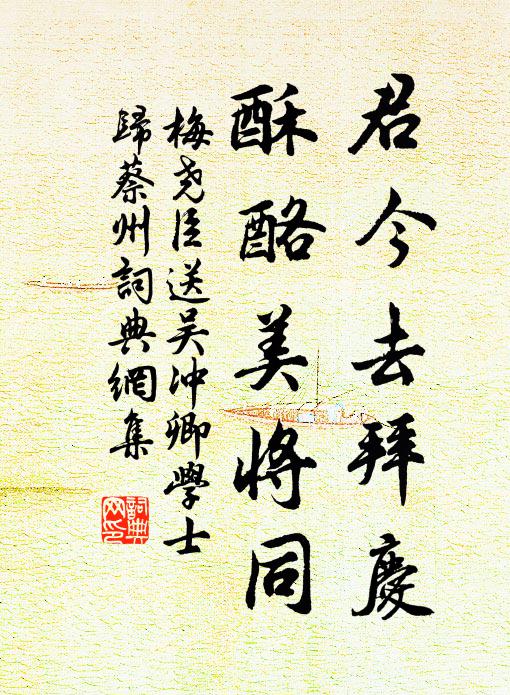 君今去拜慶
酥酪美將同
梅堯臣送吴沖卿學士
歸蔡州詞典網集
詞典网印